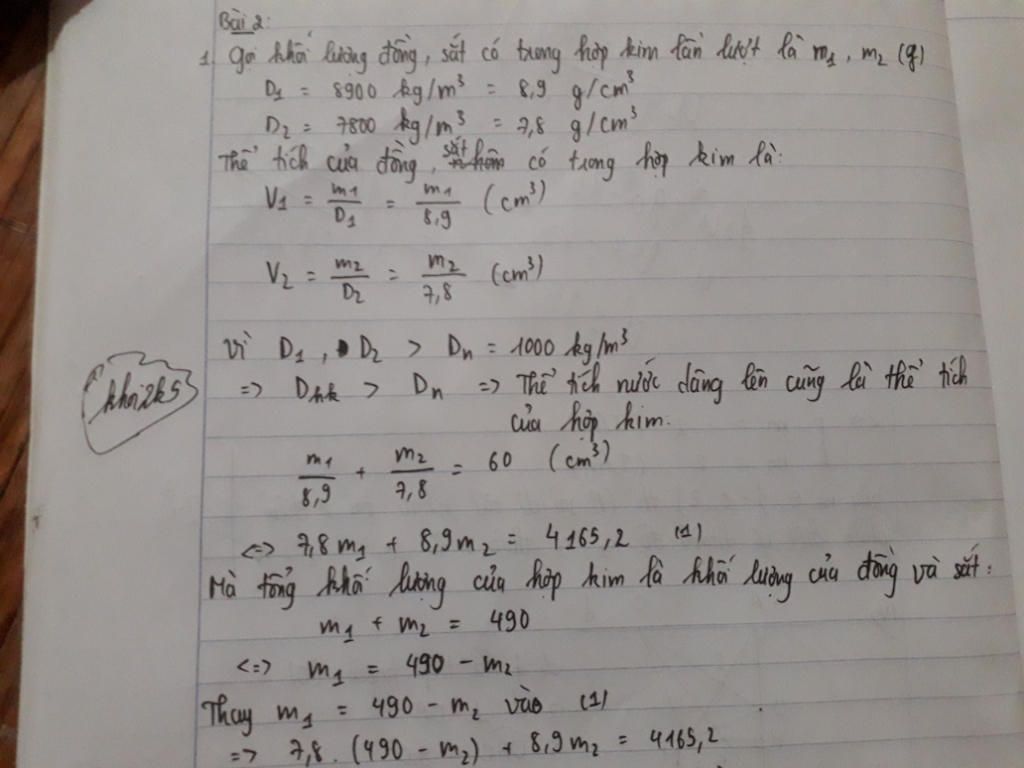 Bài 2:
1. Gọi khối lượng đồng, sắt có trong hợp kim lần lượt là m1, m2 (g)
D1 = 8900 kg/m³ = 8,9 g/cm³
D2 = 7800 kg/m³ = 7,8 g/cm³
Thể tích của đồng, sắt có trong hợp kim là:
V1 = m1/D1 = m1/8,9 (cm³)
V2 = m2/D2 = m2/7,8 (cm³)
Vì D1, D2 > Dn = 1000 kg/m³
=> Dhk > Dn => Thể tích nước dâng lên cũng là thể tích
của hợp kim.
khn2k5
m1/8,9 + m2/7,8 = 60 (cm³)
<=> 7,8m1 + 8,9m2 = 4165,2 (1)
Mà tổng khối lượng của hợp kim là khối lượng của đồng và sắt:
m1 + m2 = 490
<=> m1 = 490 - m2
Thay m1 = 490 - m2 vào (1)
=> 7,8 . (490 - m2) + 8,9m2 = 4165,2